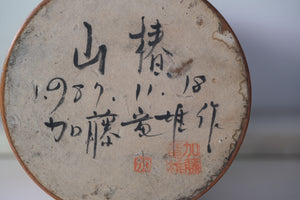 山椿
1987.11.18
加藤竜雄作
加藤